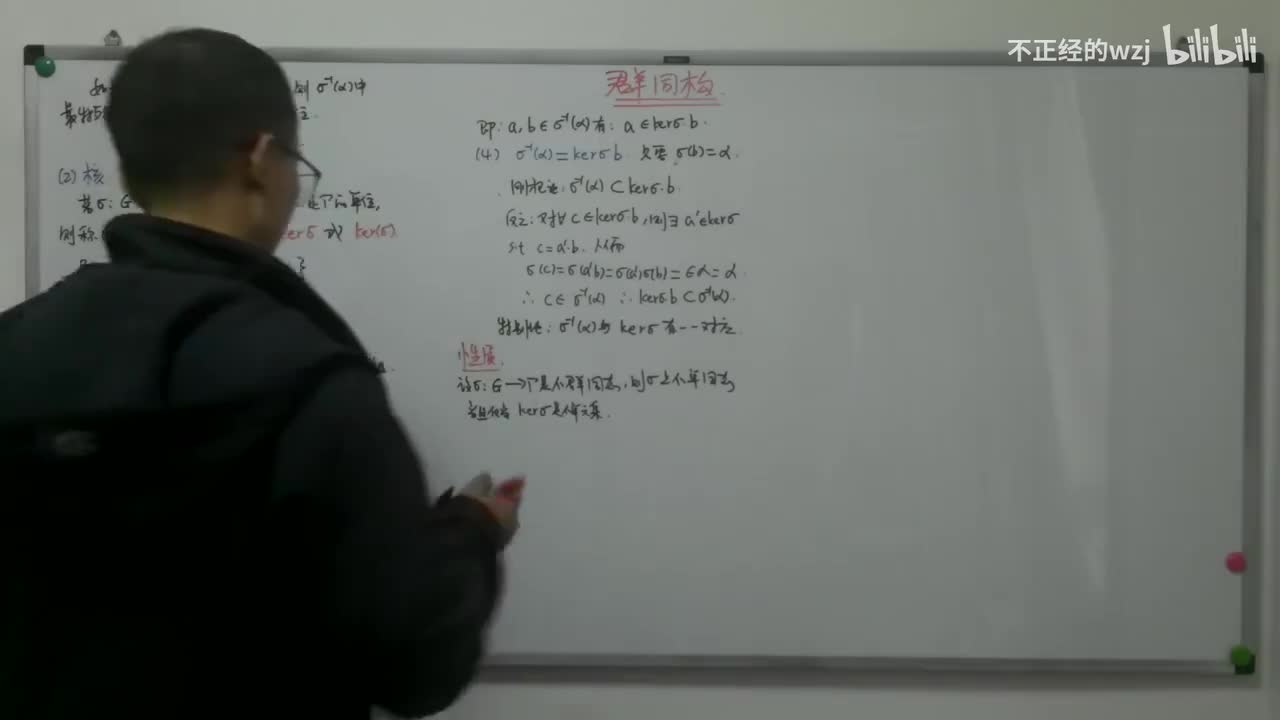 不正经的wzj bilibili
群同构
则 σ⁻¹(α)中
(2) 核
若σ: G 的单位,
则称 kerσ 或 ker(σ).
即: a, b ∈ σ⁻¹(α) 有: a ∈ kerσ b.
(4) σ⁻¹(α) = kerσ b 只要 σ(b) = α.
σ⁻¹(α) ⊂ kerσ·b.
反之: 对∀ c ∈ kerσ b, 则∃ a' ∈ kerσ
s.t. c = a'·b. 从而
σ(c) = σ(a'b) = σ(a')σ(b) = ϵα = α.
∴ c ∈ σ⁻¹(α) ∴ kerσ b ⊂ σ⁻¹(α).
特别地: σ⁻¹(α) 与 kerσ 有一一对应.
性质.
设σ: G → Γ是个群同态, 则σ是个单同态
当且仅当 kerσ是单元集.